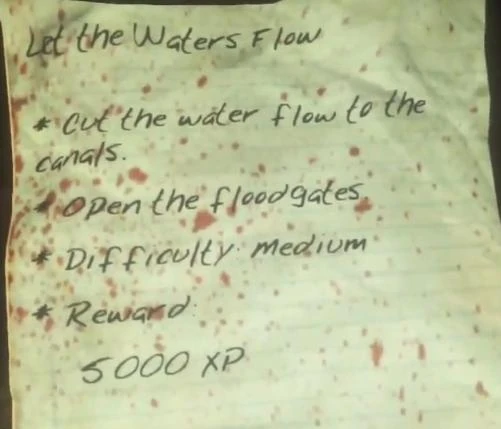 Let the Waters Flow
* Cut the water flow to the
canals.
* Open the floodgates.
* Difficulty: medium
* Reward:
5000 XP